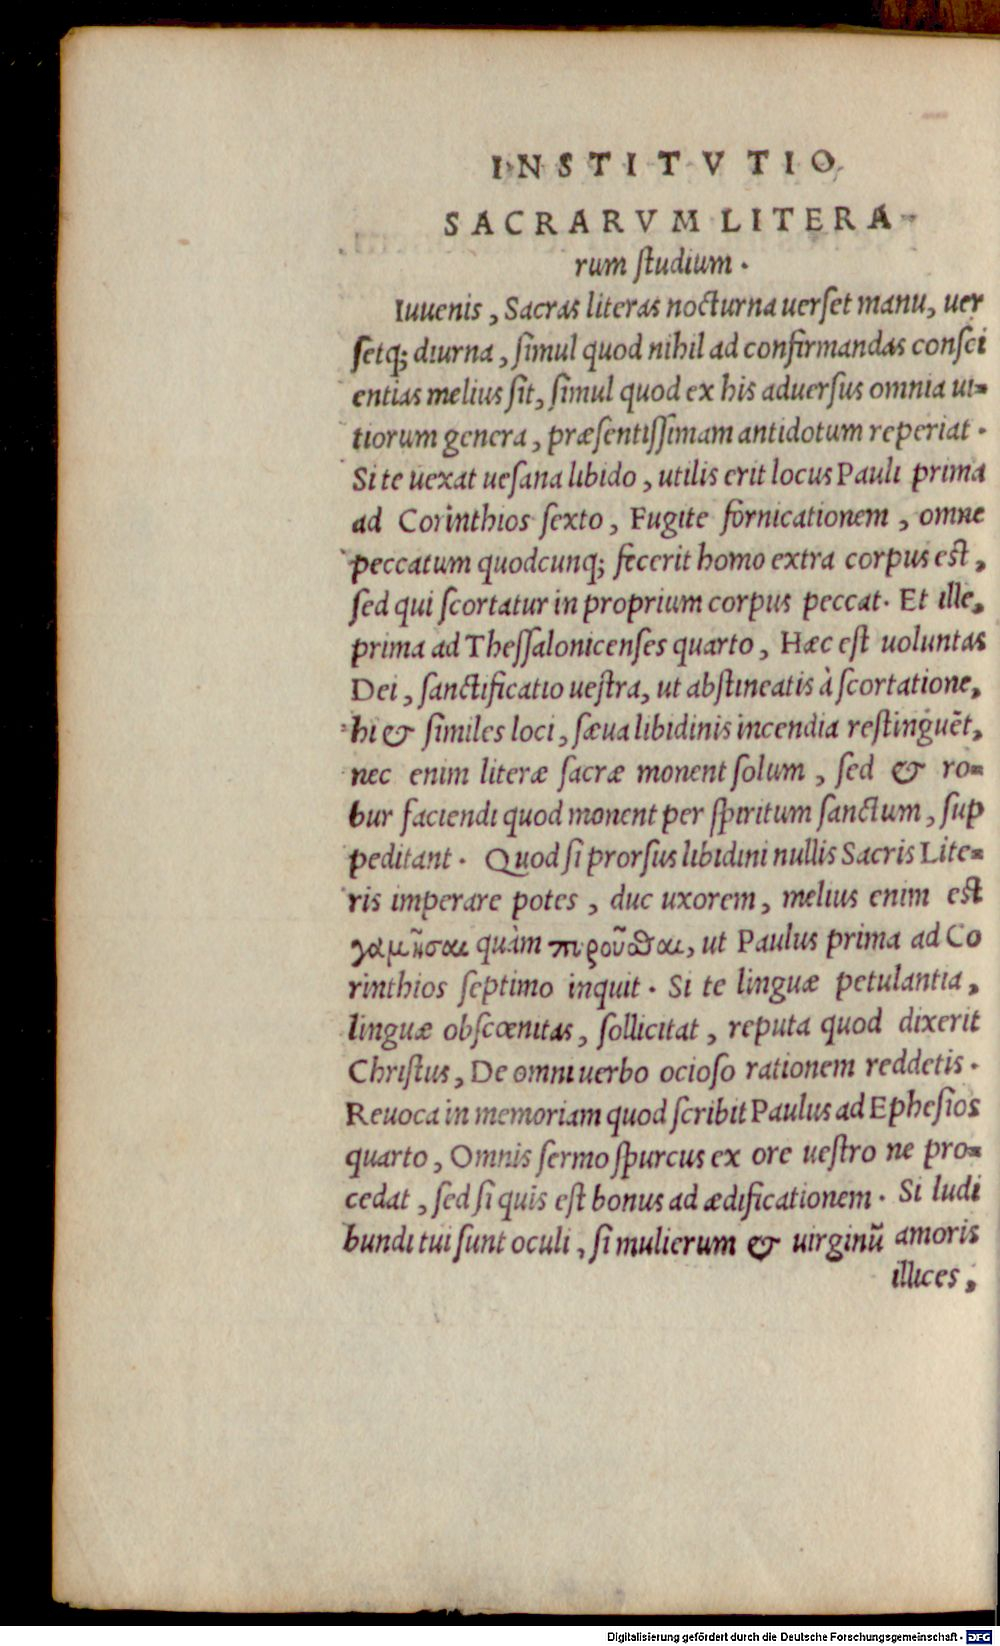 INSTITVTIO
SACRARVM LITERA-
rum ſtudium.
Iuuenis, Sacras literas nocturna uerſet manu, uer
ſetq; diurna, ſimul quod nihil ad confirmandas conſci
entias melius ſit, ſimul quod ex his aduerſus omnia ui=
tiorum genera, præſentiſſimam antidotum reperiat.
Si te uexat ueſana libido, utilis erit locus Pauli prima
ad Corinthios ſexto, Fugite fornicationem, omne
peccatum quodcunq; fecerit homo extra corpus eſt,
ſed qui ſcortatur in proprium corpus peccat. Et ille,
prima ad Theſſalonicenſes quarto, Hæc eſt uoluntas
Dei, ſanctificatio ueſtra, ut abſtineatis à ſcortatione,
hi & ſimiles loci, ſæua libidinis incendia reſtinguẽt,
nec enim literæ ſacræ monent ſolum, ſed & ro=
bur faciendi quod monent per ſpiritum ſanctum, ſup
peditant. Quod ſi prorſus libidini nullis Sacris Lite=
ris imperare potes, duc uxorem, melius enim eſt
γαμῆσαι quàm πυροῦσθαι, ut Paulus prima ad Co
rinthios ſeptimo inquit. Si te linguæ petulantia,
linguæ obſcœnitas, ſollicitat, reputa quod dixerit
Chriſtus, De omni uerbo ocioſo rationem reddetis.
Reuoca in memoriam quod ſcribit Paulus ad Epheſios
quarto, Omnis ſermo ſpurcus ex ore ueſtro ne pro=
cedat, ſed ſi quis eſt bonus ad ædificationem. Si ludi
bundi tui ſunt oculi, ſi mulierum & uirginũ amoris
illices,
Digitalisierung gefördert durch die Deutsche Forschungsgemeinschaft - DFG